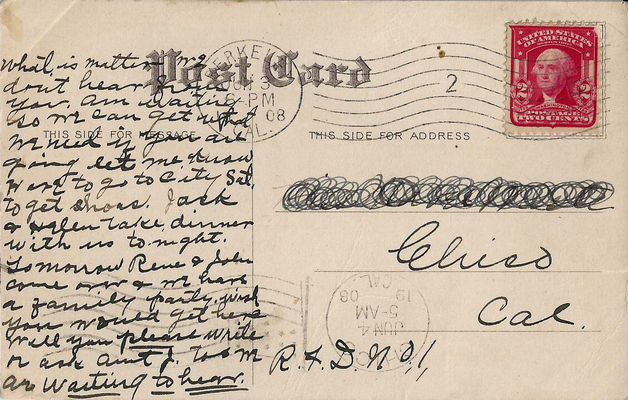 What is matter we
don't hear from
you. Am waiting
so we can get what
we need if you are
going let me know
Want to go to City Sat.
to get shoes. Jack
& Helen take dinner
with us to-night.
Tomorrow Rene & John
come over & we have
a family party. wish
you would get here
Will you please write
or ask aunt J. to &
are waiting to hear.
Post Card
THIS SIDE FOR MESSAGE
THIS SIDE FOR ADDRESS
BERKELEY
JUN 3
6-PM
08
CAL.
2
UNITED STATES
OF AMERICA
2 2
POSTAGE
TWO CENTS
Chico
Cal.
R.F.D. No 1,
CAL.
1908
5-AM
JUN 4